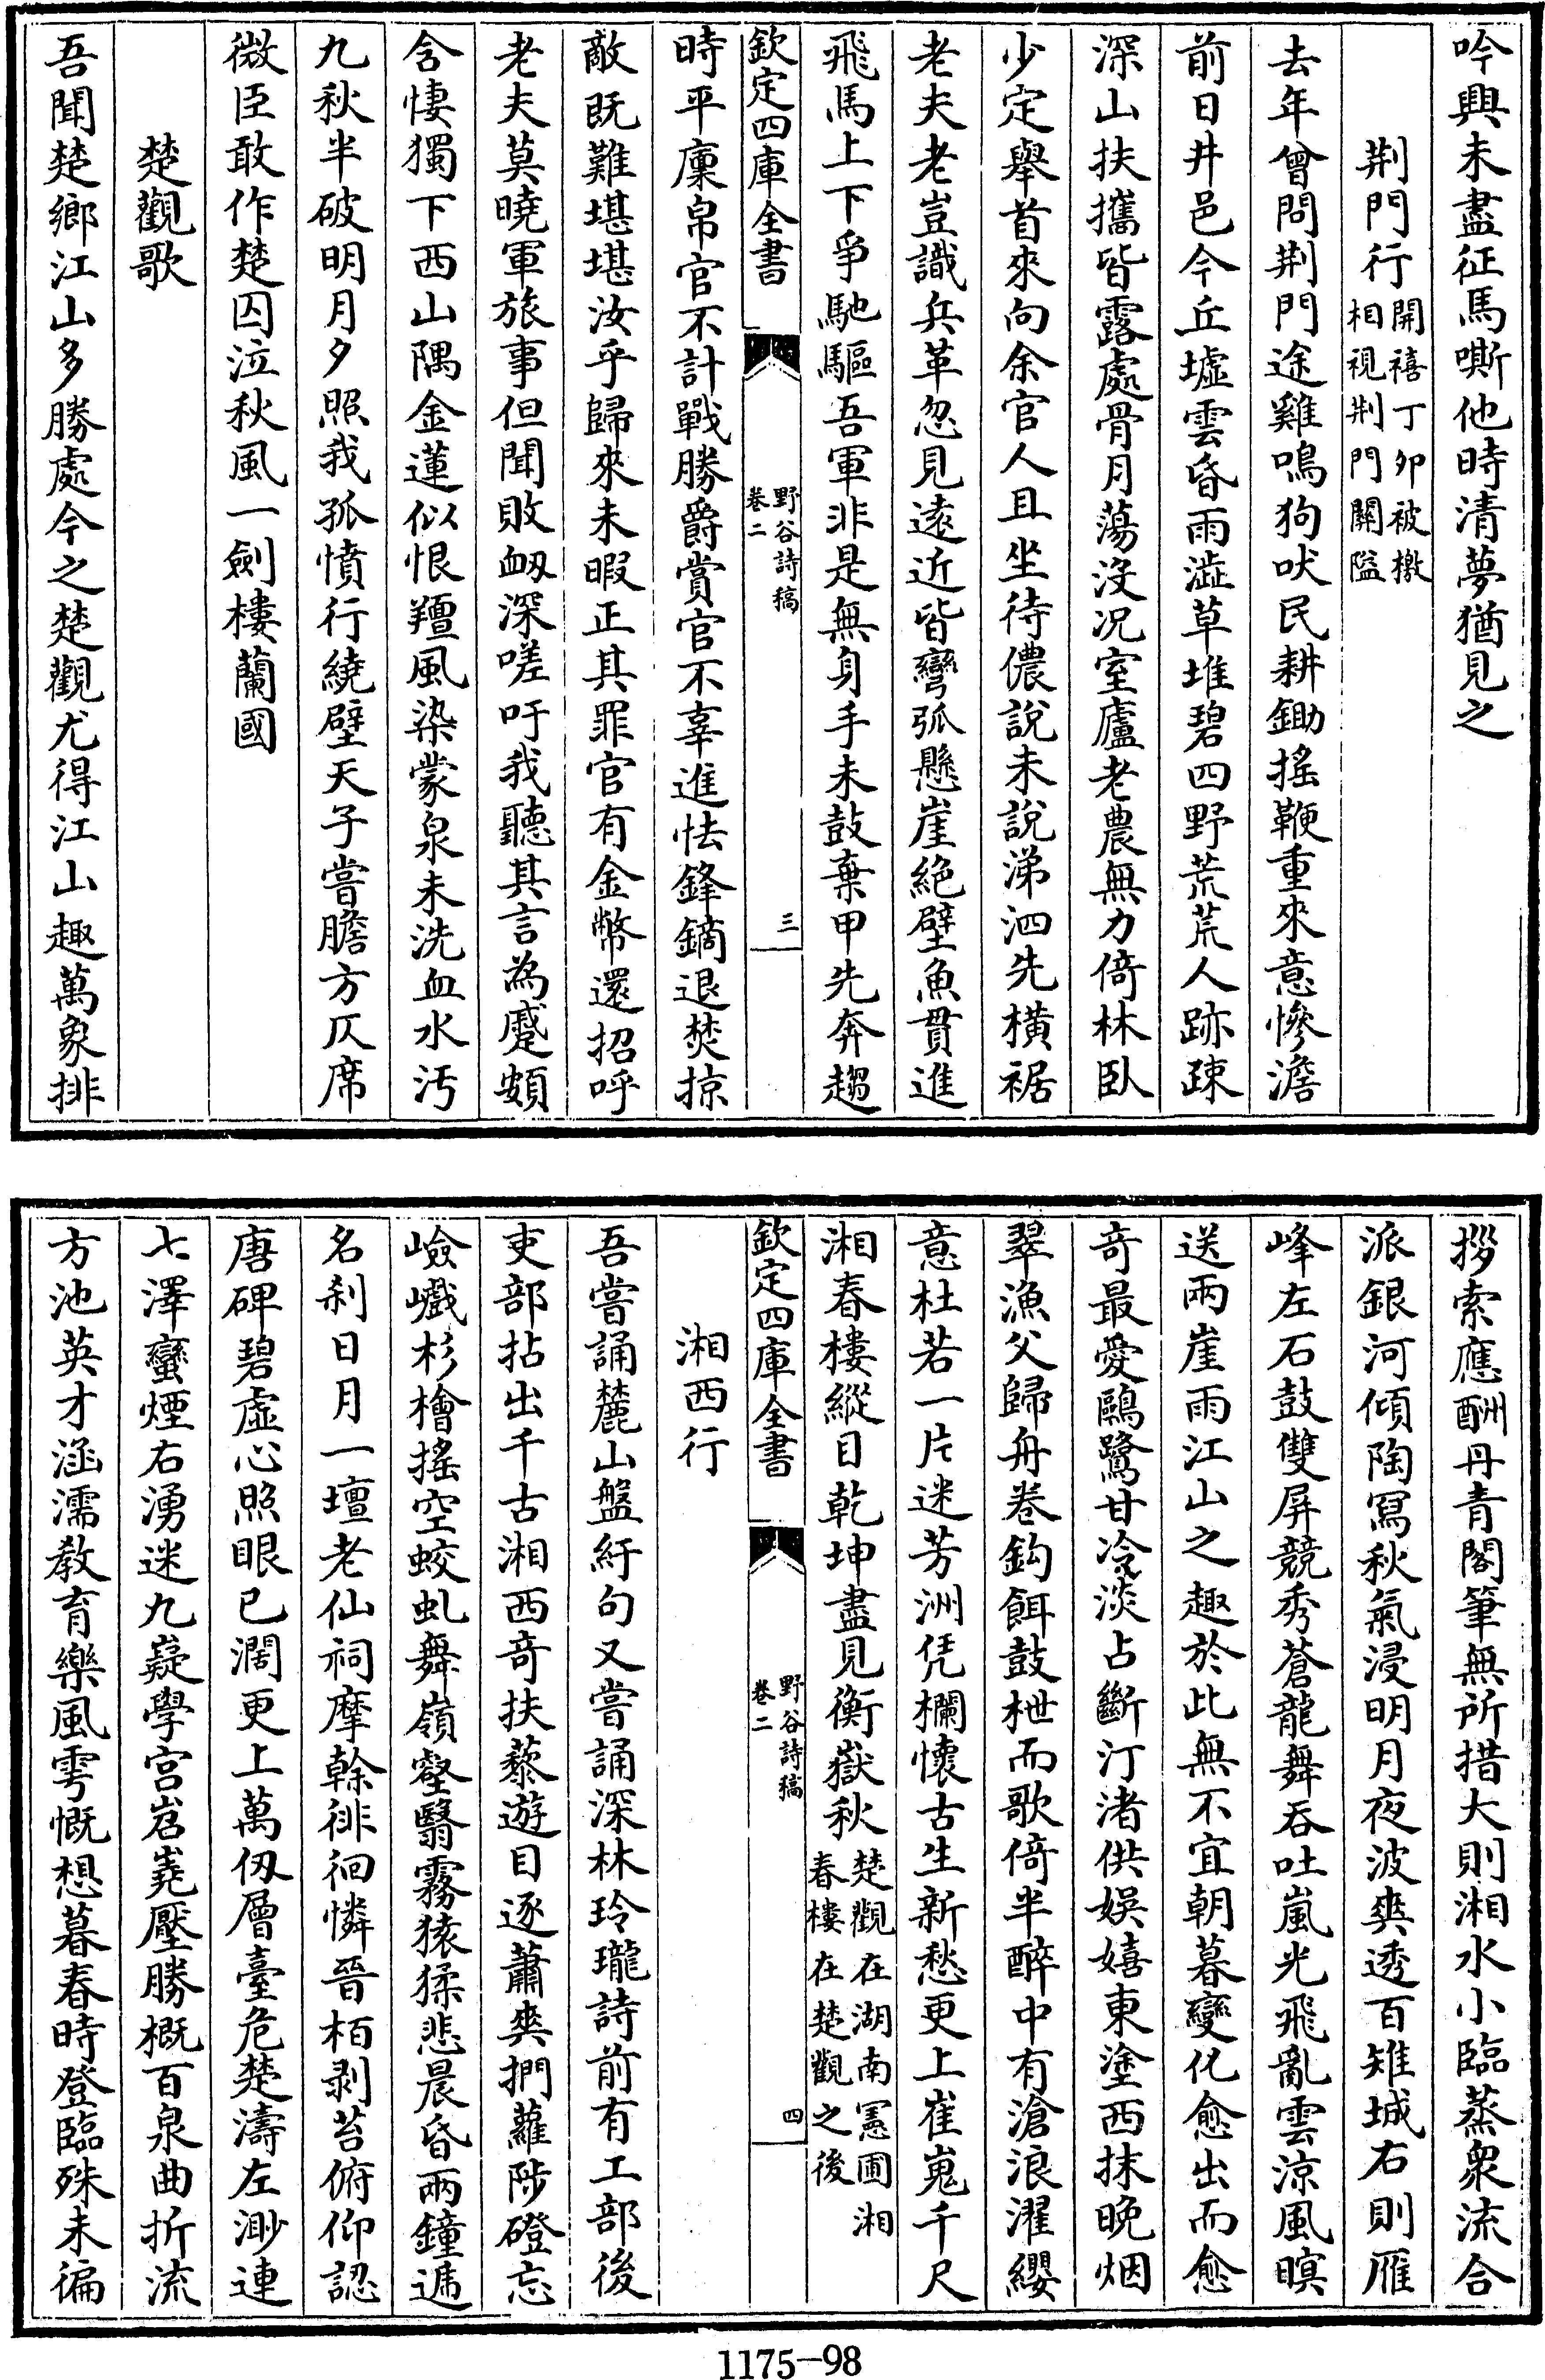 吟興未盡征馬嘶他時清夢猶見之
荆門行開禧丁卯被檄
相視荆門關隘
去年曾問荆門途雞鳴狗吠民耕鋤摇鞭重來意慘澹
前日井邑今丘墟雲昏雨澁草堆碧四野荒荒人跡疎
深山扶攜皆露處骨月蕩没况室廬老農無力倚林臥
少定舉首來向余官人且坐待儂說未說涕泗先橫裾
老夫老豈識兵革忽見逺近皆彎弧懸崖絶壁魚貫進
飛馬上下爭馳驅吾軍非是無身手未鼓棄甲先奔趨
欽定四庫全書
野谷詩稿
卷二
三
時平廩帛官不計戰勝爵賞官不辜進怯鋒鏑退焚掠
敵既難堪堪汝乎歸來未暇正其罪官有金幣還招呼
老夫莫曉軍旅事但聞敗衂深嗟吁我聽其言為蹙頞
含悽獨下西山隅金蓮似恨羶風染蒙泉未洗血水汚
九秋半破明月夕照我孤憤行繞壁天子嘗膽方仄席
微臣敢作楚囚泣秋風一劍樓蘭國
楚觀歌
吾聞楚鄉江山多勝處今之楚觀尤得江山趣萬象排
拶索應酬丹青閣筆無所措大則湘水小臨蒸衆流合
派銀河傾陶冩秋氣浸明月夜波爽透百雉城右則雁
峰左石鼓雙屏競秀蒼龍舞吞吐嵐光飛亂雲涼風暝
送兩崖雨江山之趣於此無不宜朝暮變化愈出而愈
奇最愛鷗鷺甘冷淡占斷汀渚供娱嬉東塗西抹晚烟
翠漁父歸舟卷鈎餌鼓枻而歌倚半醉中有滄浪濯纓
意杜若一片迷芳洲凭欄懐古生新愁更上崔嵬千尺
湘春樓縱目乾坤盡見衡嶽秋楚觀在湖南憲圃湘
春樓在楚觀之後
欽定四庫全書
野谷詩稿
卷二
四
湘西行
吾嘗誦麓山盤紆句又嘗誦深林玲瓏詩前有工部後
吏部拈出千古湘西奇扶藜遊目逐蕭爽捫蘿陟磴忘
嶮巇杉檜摇空蛟虬舞嶺壑翳霧猿猱悲晨昏兩鐘逓
名刹日月一壇老仙祠摩榦徘徊憐晉栢剥苔俯仰認
唐碑碧虛心照眼已濶更上萬仭層臺危楚濤左渺連
七澤蠻煙右湧迷九嶷學宫岧嶤壓勝概百泉曲折流
方池英才涵濡教育樂風雩慨想暮春時登臨殊未徧
1175-98